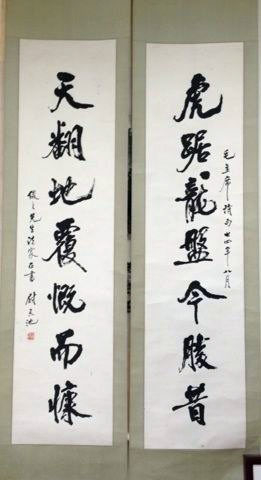 毛主席詩句 七四年八月
虎踞龍盤今勝昔
天翻地覆慨而慷
先生法家正書 尉天池